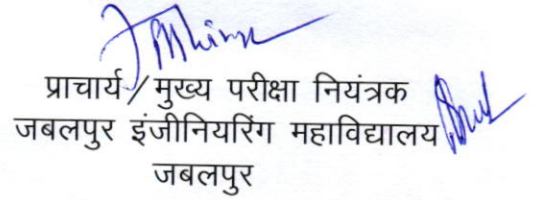 प्राचार्य/मुख्य परीक्षा नियंत्रक
जबलपुर इंजीनियरिंग महाविद्यालय
जबलपुर